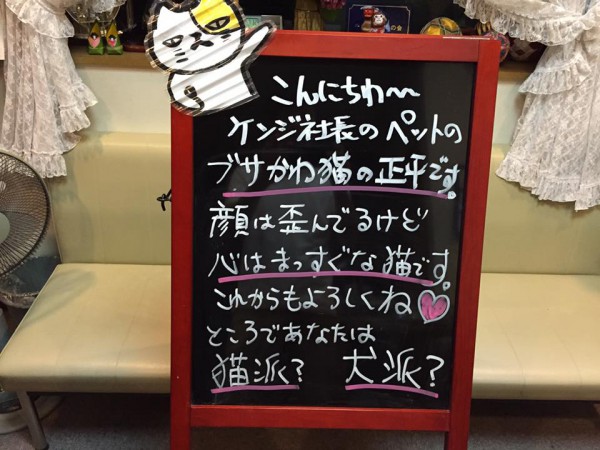 こんにちわ〜
ケンジ社長のペットの
ブサかわ猫の正平です。
顔は歪んでるけど
心はまっすぐな猫です。
これからもよろしくね♥
ところであなたは
猫派? 犬派?